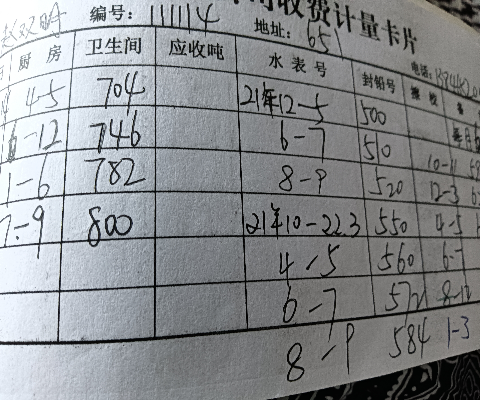 收费计量卡片
赵双明 编号: 111114 地址: 651 电话:
厨房 卫生间 应收吨 水表号 封铅号
4-5 704 21年12-5 500
-12 746 6-7 510 10-11
1-6 782 8-9 520 12-3
7-9 800 21年10-22.3 550 4-5
4-5 560 6-7
6-7 572 8-12
8-9 584 1-3